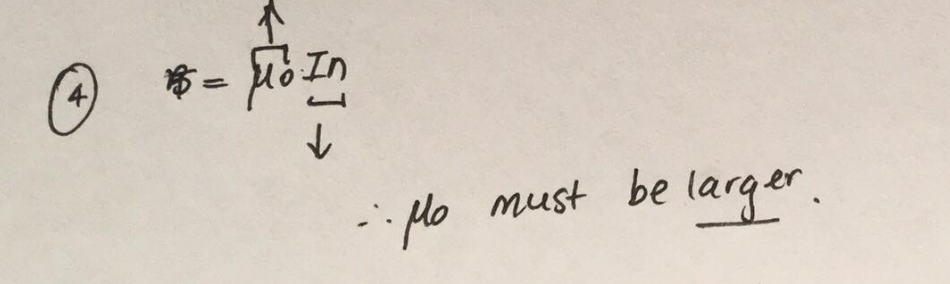 ④ B = μ₀ In
∴ μ₀ must be larger.